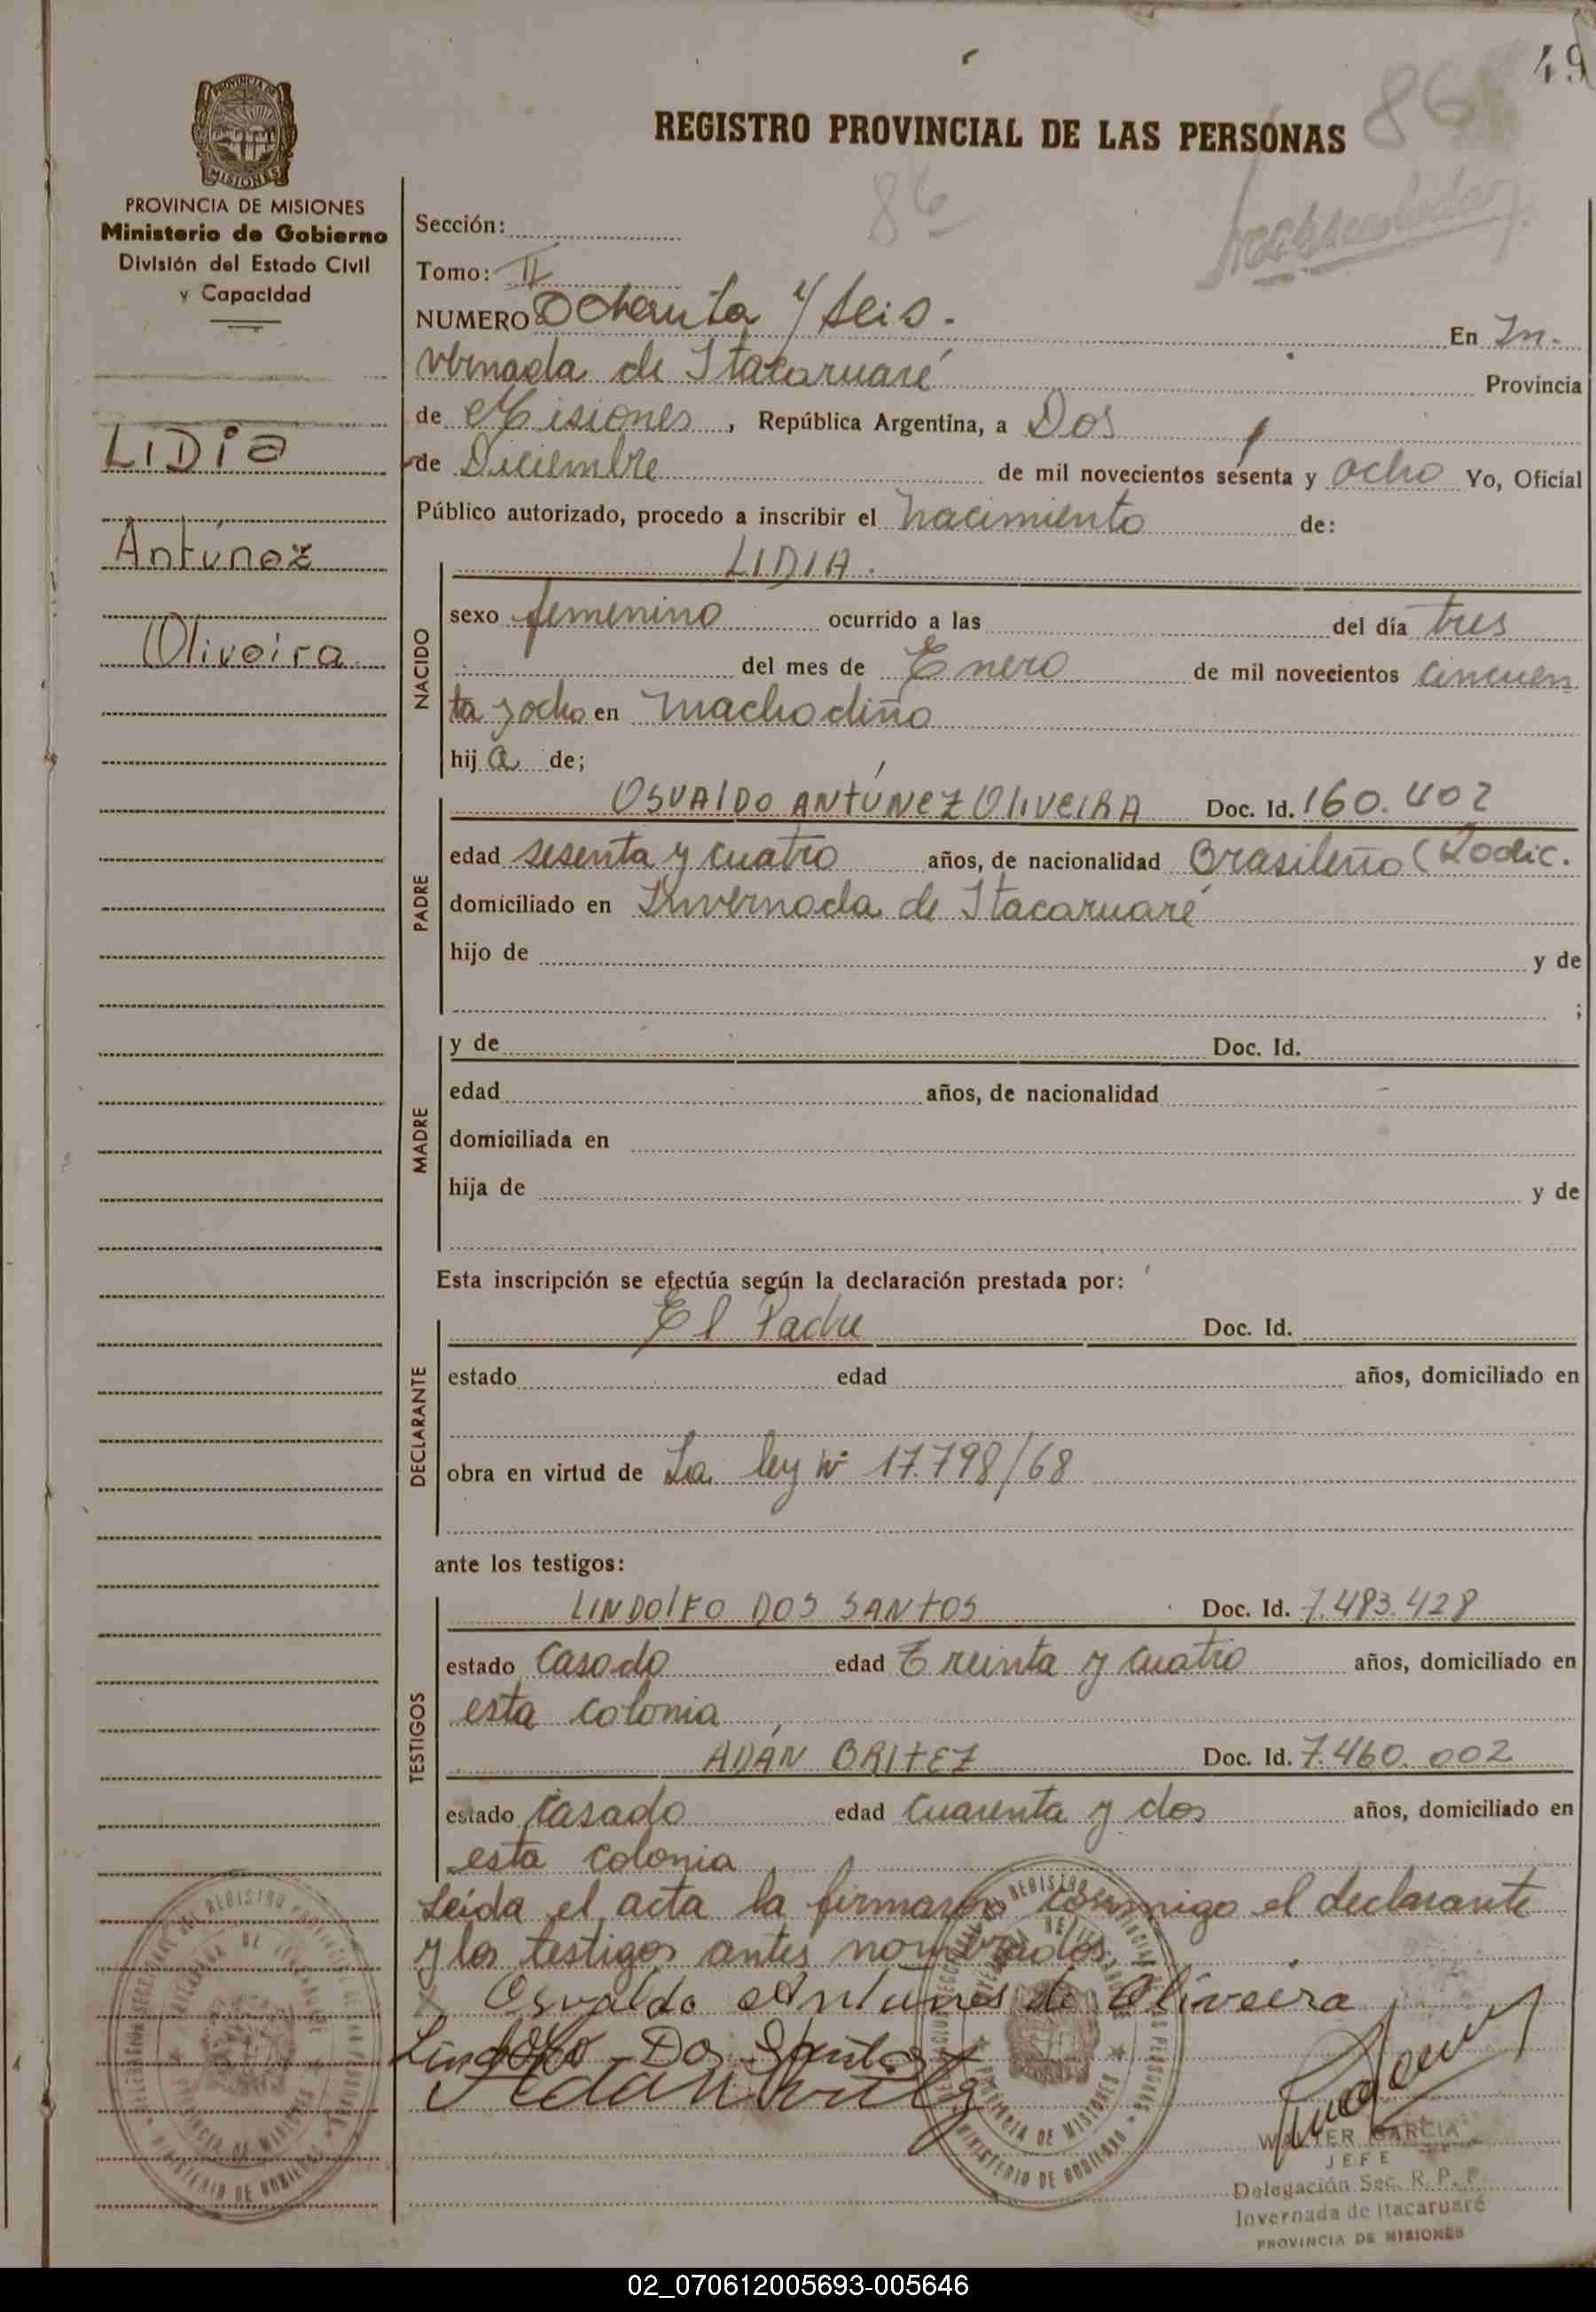 49
86
REGISTRO PROVINCIAL DE LAS PERSONAS
PROVINCIA DE MISIONES
Ministerio de Gobierno
División del Estado Civil
y Capacidad
86
Sección:
Tomo: II
NUMERO Ochenta y seis. En In-
vernada de Itacaruaré Provincia
de Misiones, República Argentina, a Dos
de Diciembre de mil novecientos sesenta y ocho Yo, Oficial
Público autorizado, procedo a inscribir el nacimiento de:
LIDIA
Antúnez
Oliveira
NACIDO
LIDIA.
sexo femenino ocurrido a las del día tres
del mes de Enero de mil novecientos cincuen
ta y ocho en Machodiño
hija de;
PADRE
OSVALDO ANTÚNEZ OLIVEIRA Doc. Id. 160.402
edad sesenta y cuatro años, de nacionalidad Brasileño (Rodic.
domiciliado en Invernada de Itacaruaré
hijo de y de
;
MADRE
y de Doc. Id.
edad años, de nacionalidad
domiciliada en
hija de y de
Esta inscripción se efectúa según la declaración prestada por:
DECLARANTE
El Padre Doc. Id.
estado edad años, domiciliado en
obra en virtud de La ley Nº 17.798/68
ante los testigos:
TESTIGOS
LINDOLFO DOS SANTOS Doc. Id. 7.483.428
estado Casado edad Treinta y cuatro años, domiciliado en
esta colonia
ADÁN BRITEZ Doc. Id. 7.460.002
estado casado edad cuarenta y dos años, domiciliado en
esta colonia
Leída el acta la firmaron conmigo el declarante
y los testigos antes nombrados.
Osvaldo Antunes de Oliveira
Lindolfo Dos Santos
Adan Britez
WALTER GARCIA
JEFE
Delegación Sec. R. P. P.
Invernada de Itacaruaré
PROVINCIA DE MISIONES
02_070612005693-005646